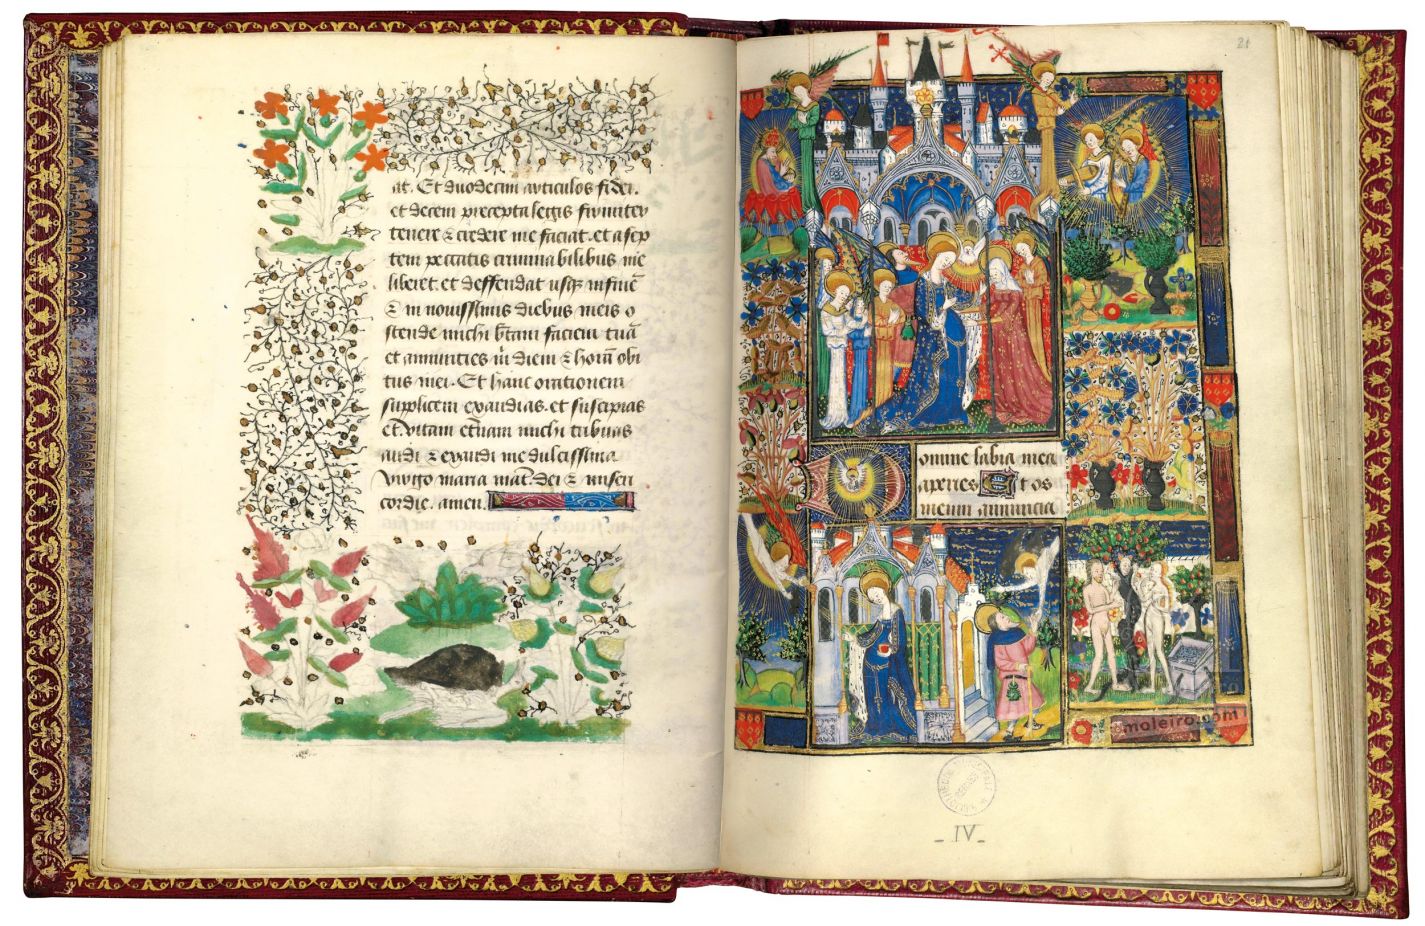 at. Et duodecim articulos fidei.
et decem precepta legis firmiter
tenere & credere me faciat. et a sep
tem peccatis criminabilibus me
liberet. et deffendat usqz in finē
& in novissimis diebus meis o
stende michi btām faciem tuā
et annuncies m̄ diem & horā obi
tus mei. Et hanc orationem
supplicem exaudias. et suscipias
et vitam etnām michi tribuas
audi & exaudi me dulcissima
virgo maria mat̄ dei & miseri
cordie. amen.
21
omine labia mea
aperies Et os
meum annunciē
moleiro.com
_IV_